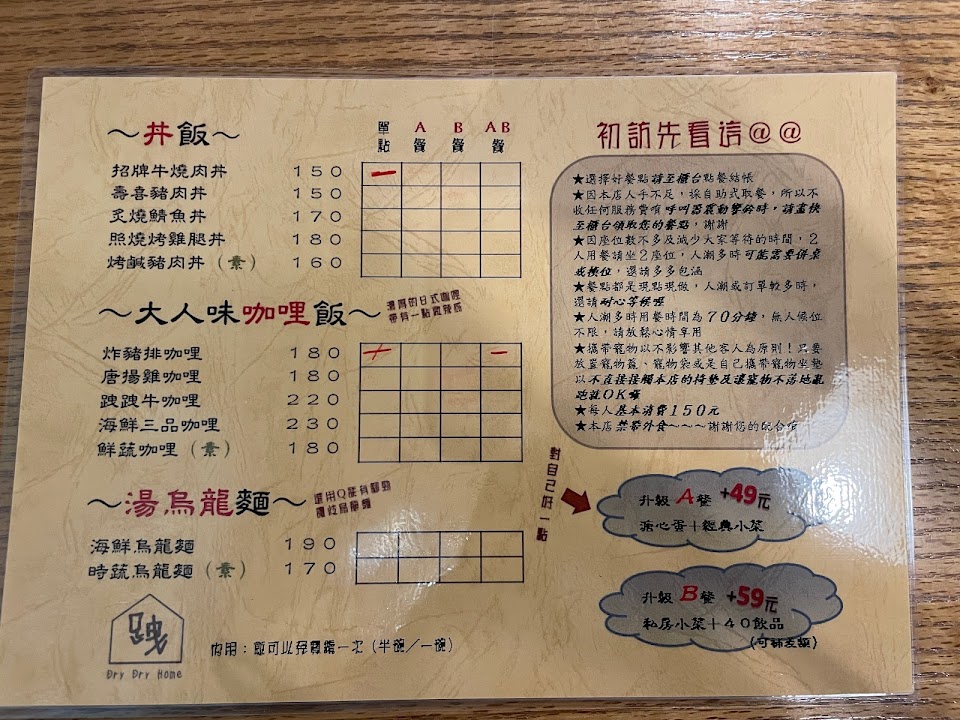 ～丼飯～
單點 A餐 B餐 AB餐
招牌牛燒肉丼 150
壽喜豬肉丼 150
炙燒鯖魚丼 170
照燒烤雞腿丼 180
烤鹹豬肉丼（素） 160
～大人味咖哩飯～
濃厚的日式咖哩
帶有一點微辣感
炸豬排咖哩 180
唐揚雞咖哩 180
跩跩牛咖哩 220
海鮮三品咖哩 230
鮮蔬咖哩（素） 180
～湯烏龍麵～
選用Q彈有勁的
讚岐烏龍麵
海鮮烏龍麵 190
時蔬烏龍麵（素） 170
Dry Dry Home
內用：飯可以再續一次（半碗／一碗）
初訪先看這@@
★選擇好餐點請至櫃台點餐結帳
★因本店人手不足，採自助式取餐，所以不
收任何服務費唷呼叫器震動響鈴時，請盡快
至櫃台領取您的餐點，謝謝
★因座位數不多及減少大家等待的時間，2
人用餐請坐2座位，人潮多時可能需要併桌
或換位，還請多多包涵
★餐點都是現點現做，人潮或訂單較多時，
還請耐心等候喔
★人潮多時用餐時間為70分鐘，無人候位
不限，請放鬆心情享用
★攜帶寵物以不影響其他客人為原則！只要
放置寵物籃、寵物袋或是自己攜帶寵物坐墊
以不直接接觸本店的椅墊及讓寵物不落地亂
跑就OK囉
★每人基本消費150元
★本店禁帶外食～～～謝謝您的配合唷
對自己好一點
升級A餐+49元
溏心蛋＋經典小菜
升級B餐+59元
私房小菜＋40飲品
（可補差額）